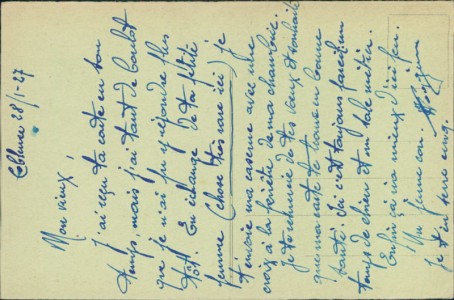 28/1-27
Mon vieux,
J'ai reçu ta carte en bon
temps, mais j'ai tant de boulot
que je n'ai pu y répondre plus
tôt. En échange de ta petite
femme (chose très rare ici) je
t'envoie ma caserne avec une
croix à la fenêtre de ma chambre.
Je te remercie de tes vœux et souhaite
que ma carte te trouve en bonne
santé. Ici c'est toujours pareil un
temps de chien et un sale métier.
Enfin ça va mieux d'ici peu.
Un
Je t'en serre cinq.